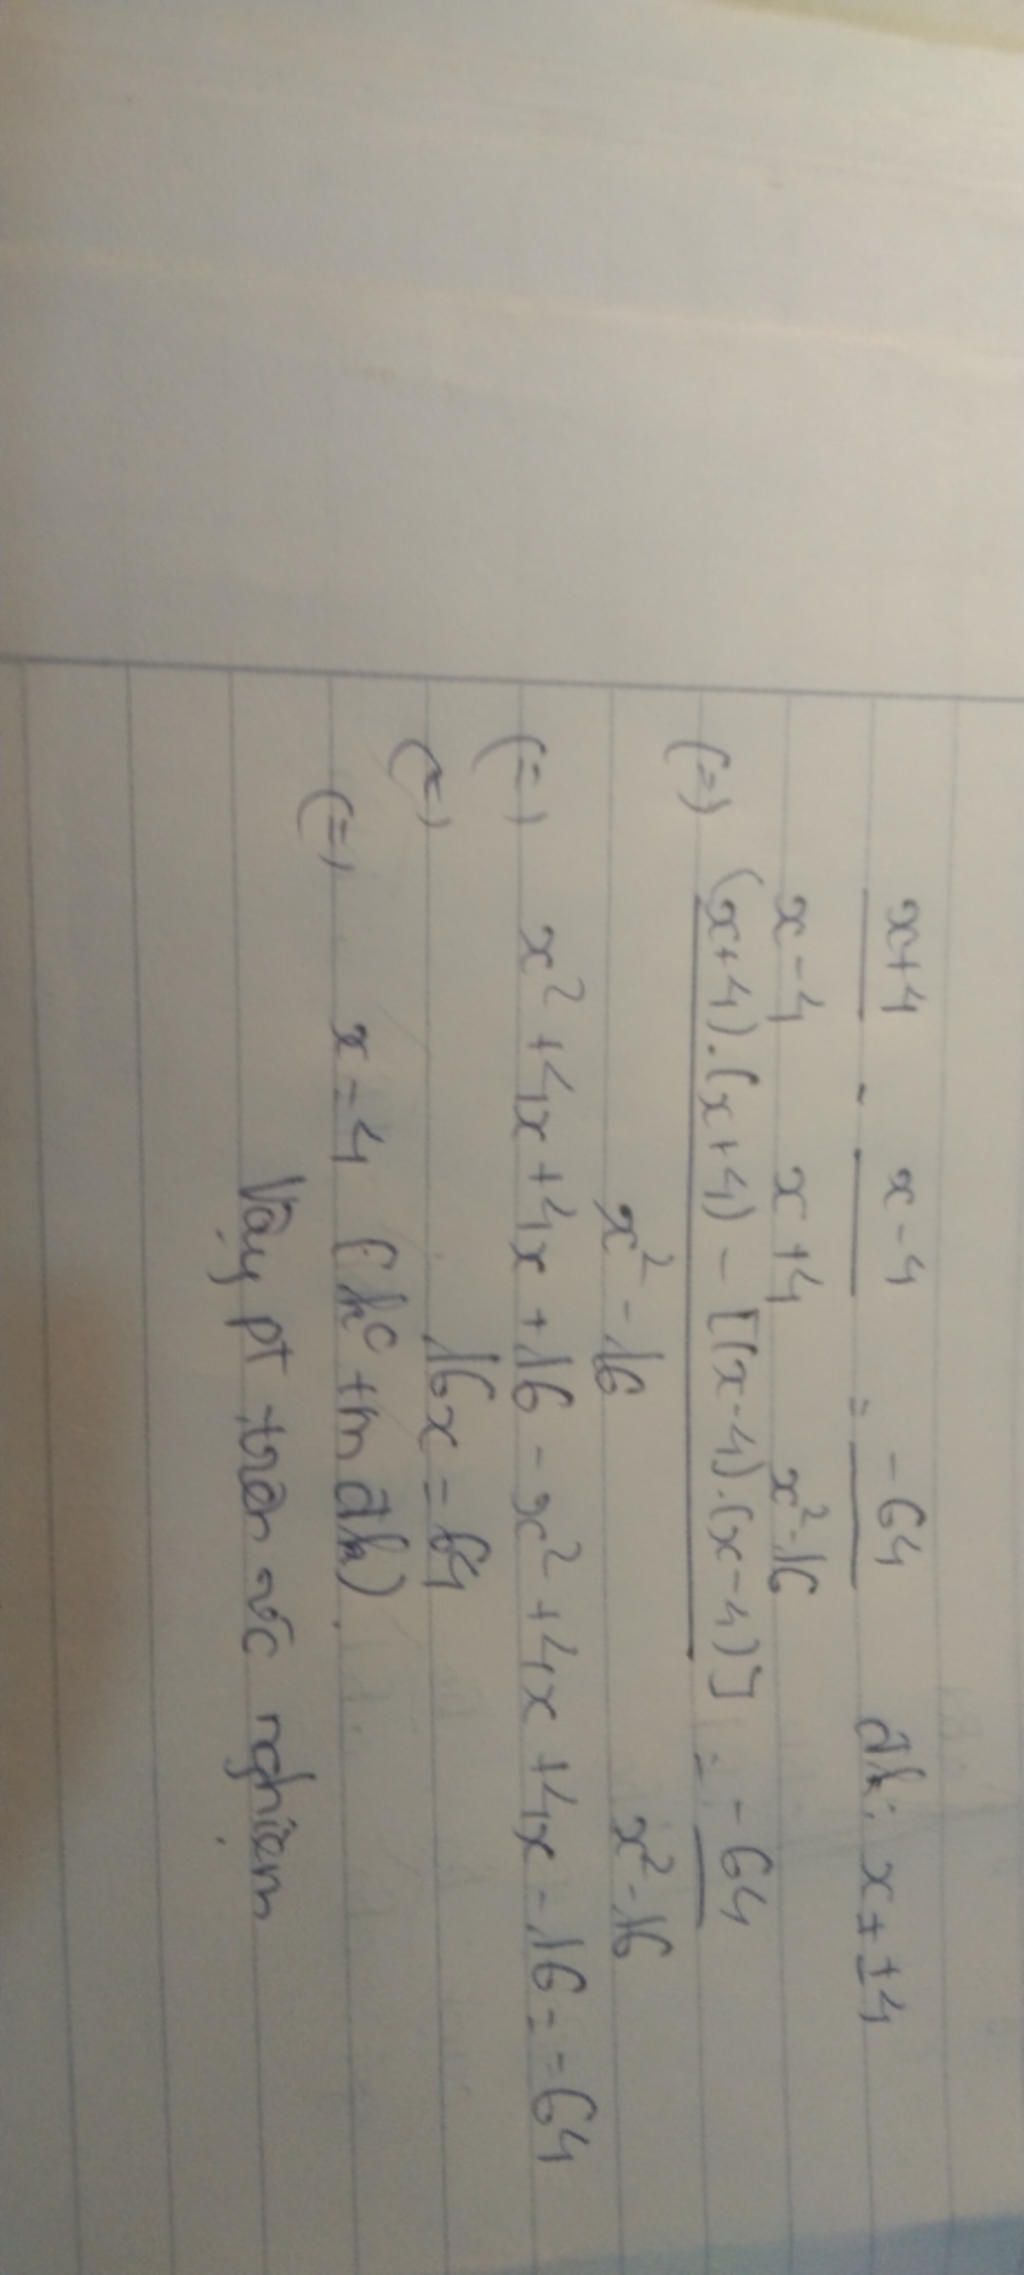 x+4/x-4 - x-4/x+4 = -64/x²-16 đk: x ≠ ±4
(=) (x+4).(x+4) - [(x-4).(x-4)]/x²-16 = -64/x²-16
(=) x² + 4x + 4x + 16 - x² + 4x + 4x - 16 = -64
(=) 16x = 64
(=) x = 4 (kc tm đk).
Vậy pt trên vc nghiệm